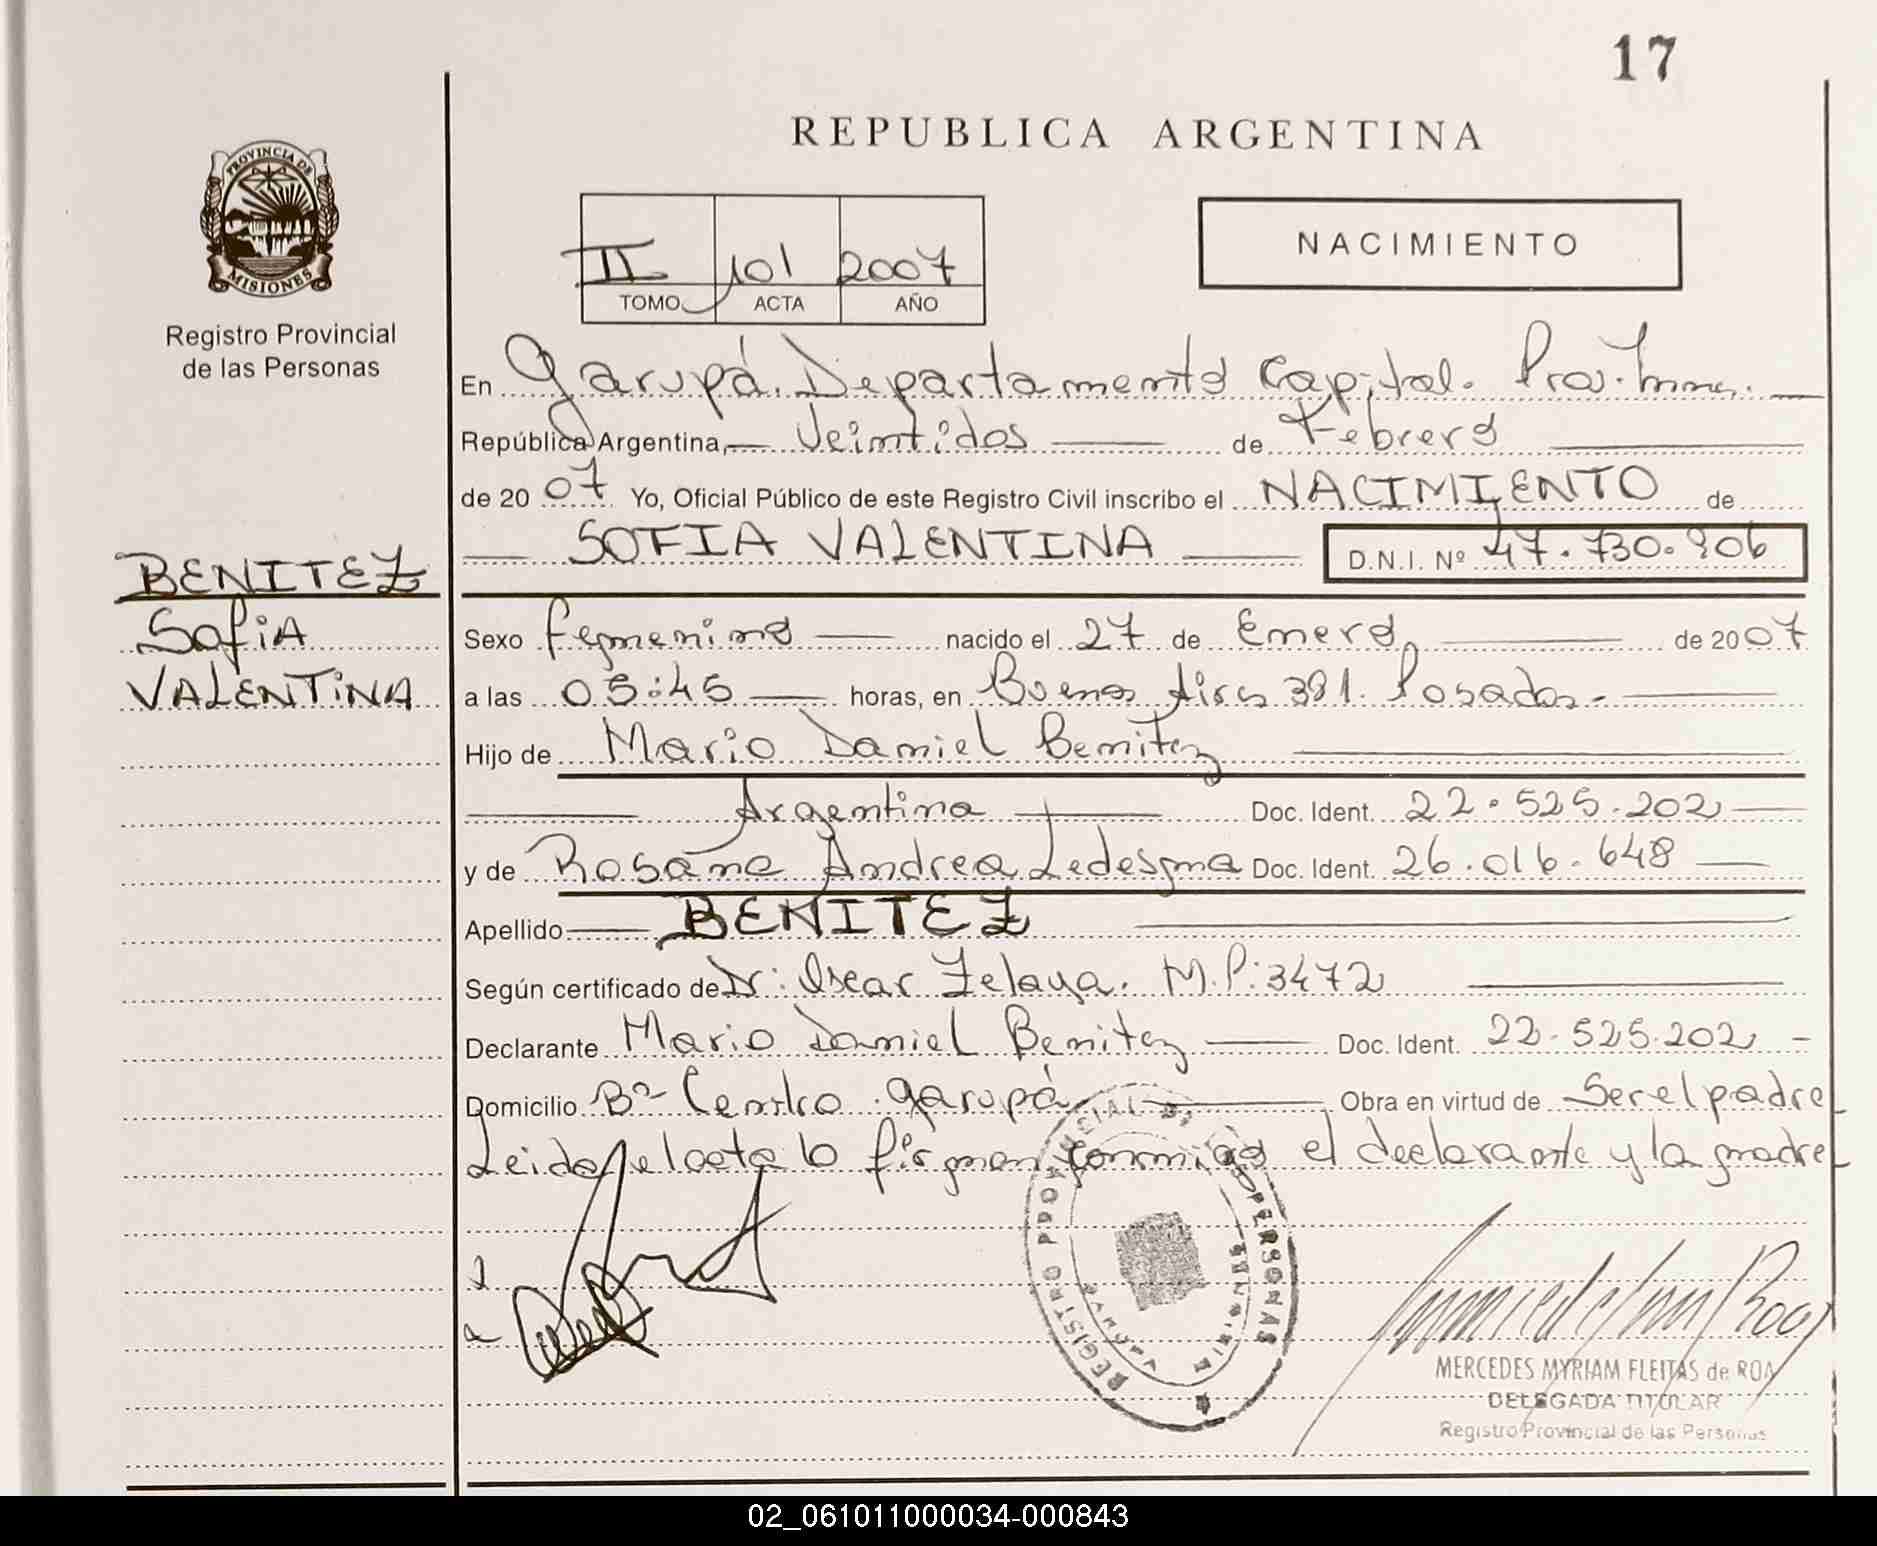 17
REPUBLICA ARGENTINA
PROVINCIA DE
MISIONES
Registro Provincial
de las Personas
II 101 2007
TOMO ACTA AÑO
NACIMIENTO
En Garupá. Departamento Capital. Prov. Mnes.
República Argentina, Veintidos de Febrero
de 2007 Yo, Oficial Público de este Registro Civil inscribo el NACIMIENTO de
SOFIA VALENTINA D.N.I. Nº 47.730.906
BENITEZ
Sofia
VALENTINA
Sexo femenino nacido el 27 de Enero de 2007
a las 05:45 horas, en Buenos Aires 381. Posadas.-
Hijo de Mario Daniel Benitez
Argentina Doc. Ident. 22.525.202
y de Rosana Andrea Ledesma Doc. Ident. 26.016.648
Apellido BENITEZ
Según certificado de Dr: Oscar Zelaya. M.P: 3472
Declarante Mario Daniel Benitez Doc. Ident. 22.525.202 -
Domicilio Bº Centro Garupá Obra en virtud de Ser el padre
Leida el acta lo firman conmigo el declarante y la madre
REGISTRO PROVINCIAL DE LAS PERSONAS
MISIONES
MERCEDES MYRIAM FLEITAS de ROA
DELEGADA TITULAR
Registro Provincial de las Personas
02_061011000034-000843